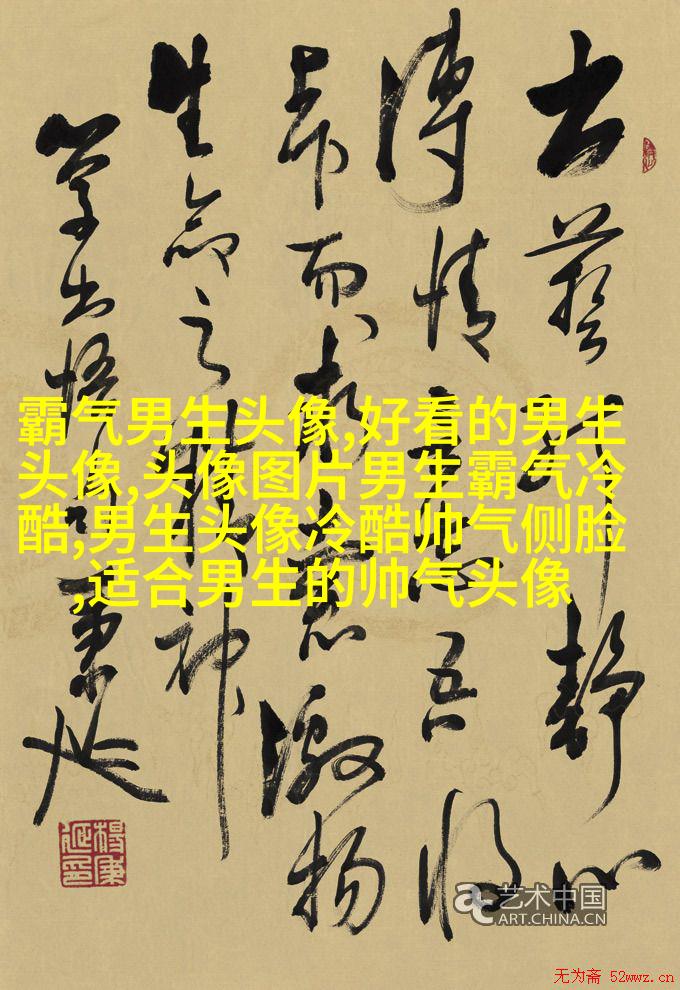 霸气男生头像,好看的男生
头像,头像图片男生霸气冷
酷,男生头像冷酷帅气侧脸
,适合男生的帅气头像
艺静心
情吾将
而求激扬
生命之神
学书悟秉延
艺术中国
ART.CHINA.CN
无为斋 52wwz.cn